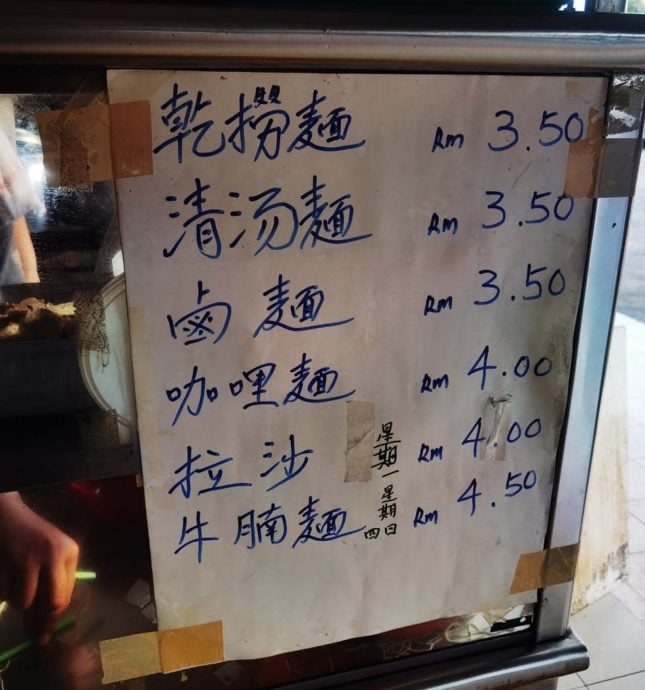 乾撈麵 Rm 3.50
清汤麵 Rm 3.50
鹵麵 Rm 3.50
咖哩麵 Rm 4.00
拉沙 星期一 Rm 4.00
牛腩麵 星期四日 Rm 4.50